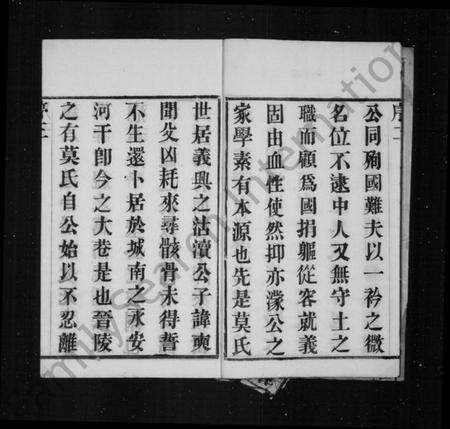 序二
公同殉國難夫以一衿之微
名位不逮中人又無守土之
職而顧為國捐軀從容就義
固由血性使然抑亦濛公之
家學素有本源也先是莫氏
世居義興之沽瀆公子諱奭
聞父凶耗來尋骸骨未得誓
不生還卜居於城南之永安
河干卽今之大巷是也晉陵
之有莫氏自公始以不忍離
FamilySearch International